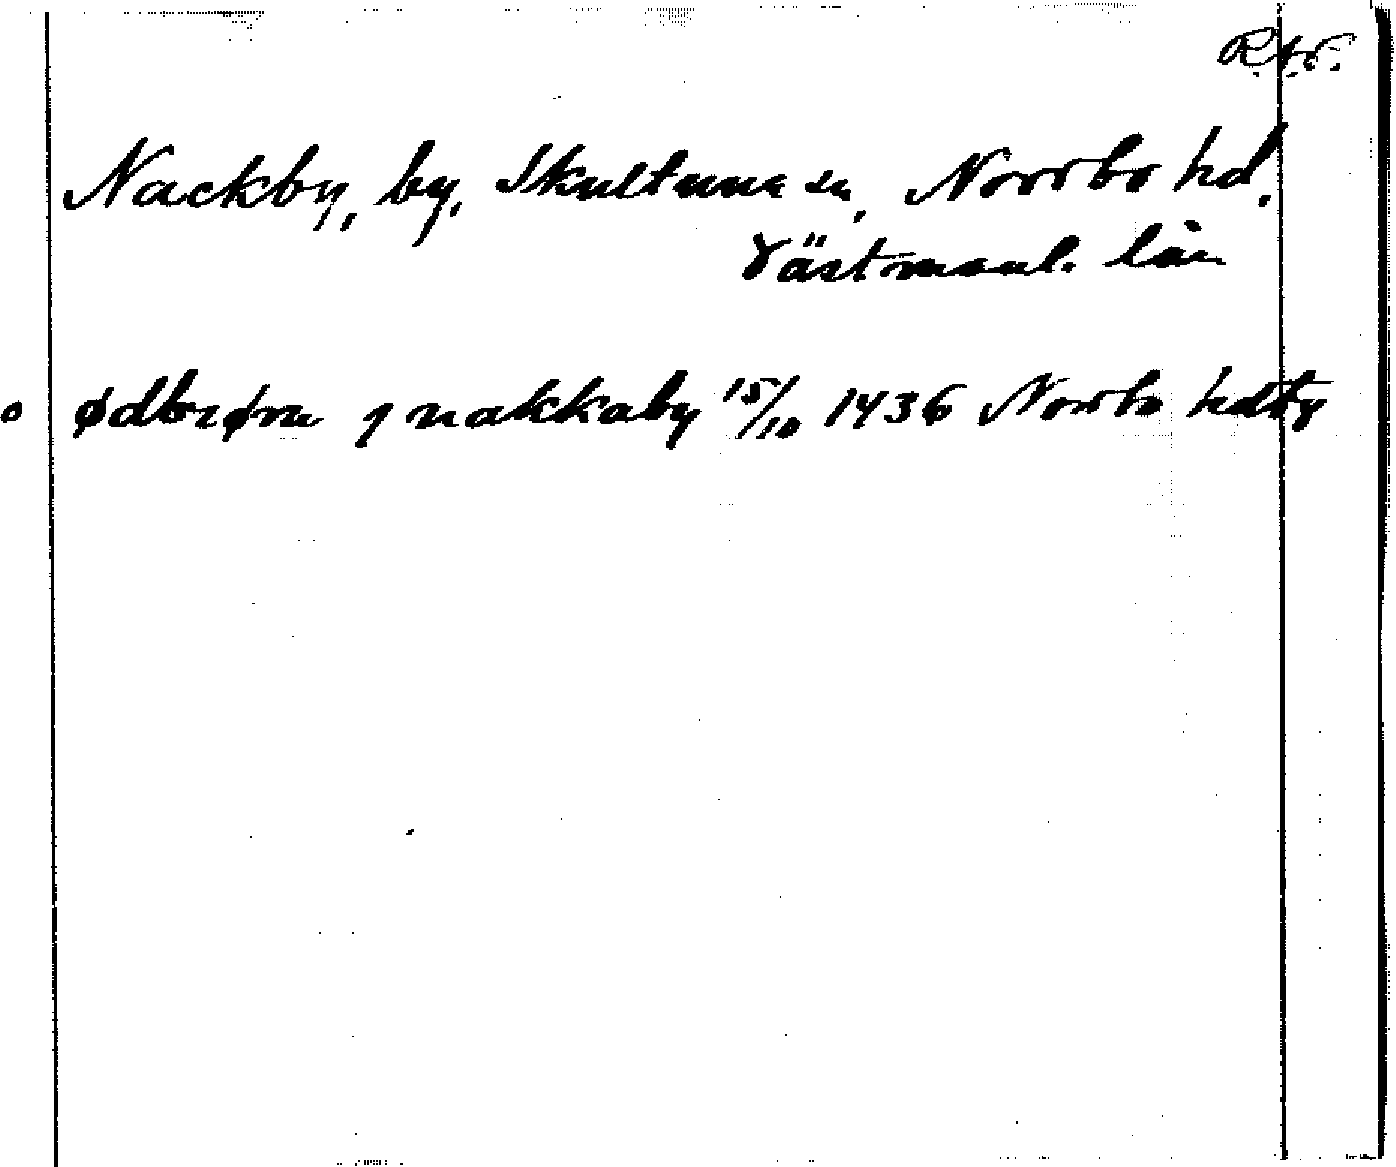 Nackby, by, Skultuna sn, Norrbo hd.
Västmanl. län
o ødbiørn j nakkaby 15/10 1436 Norbo hdtg